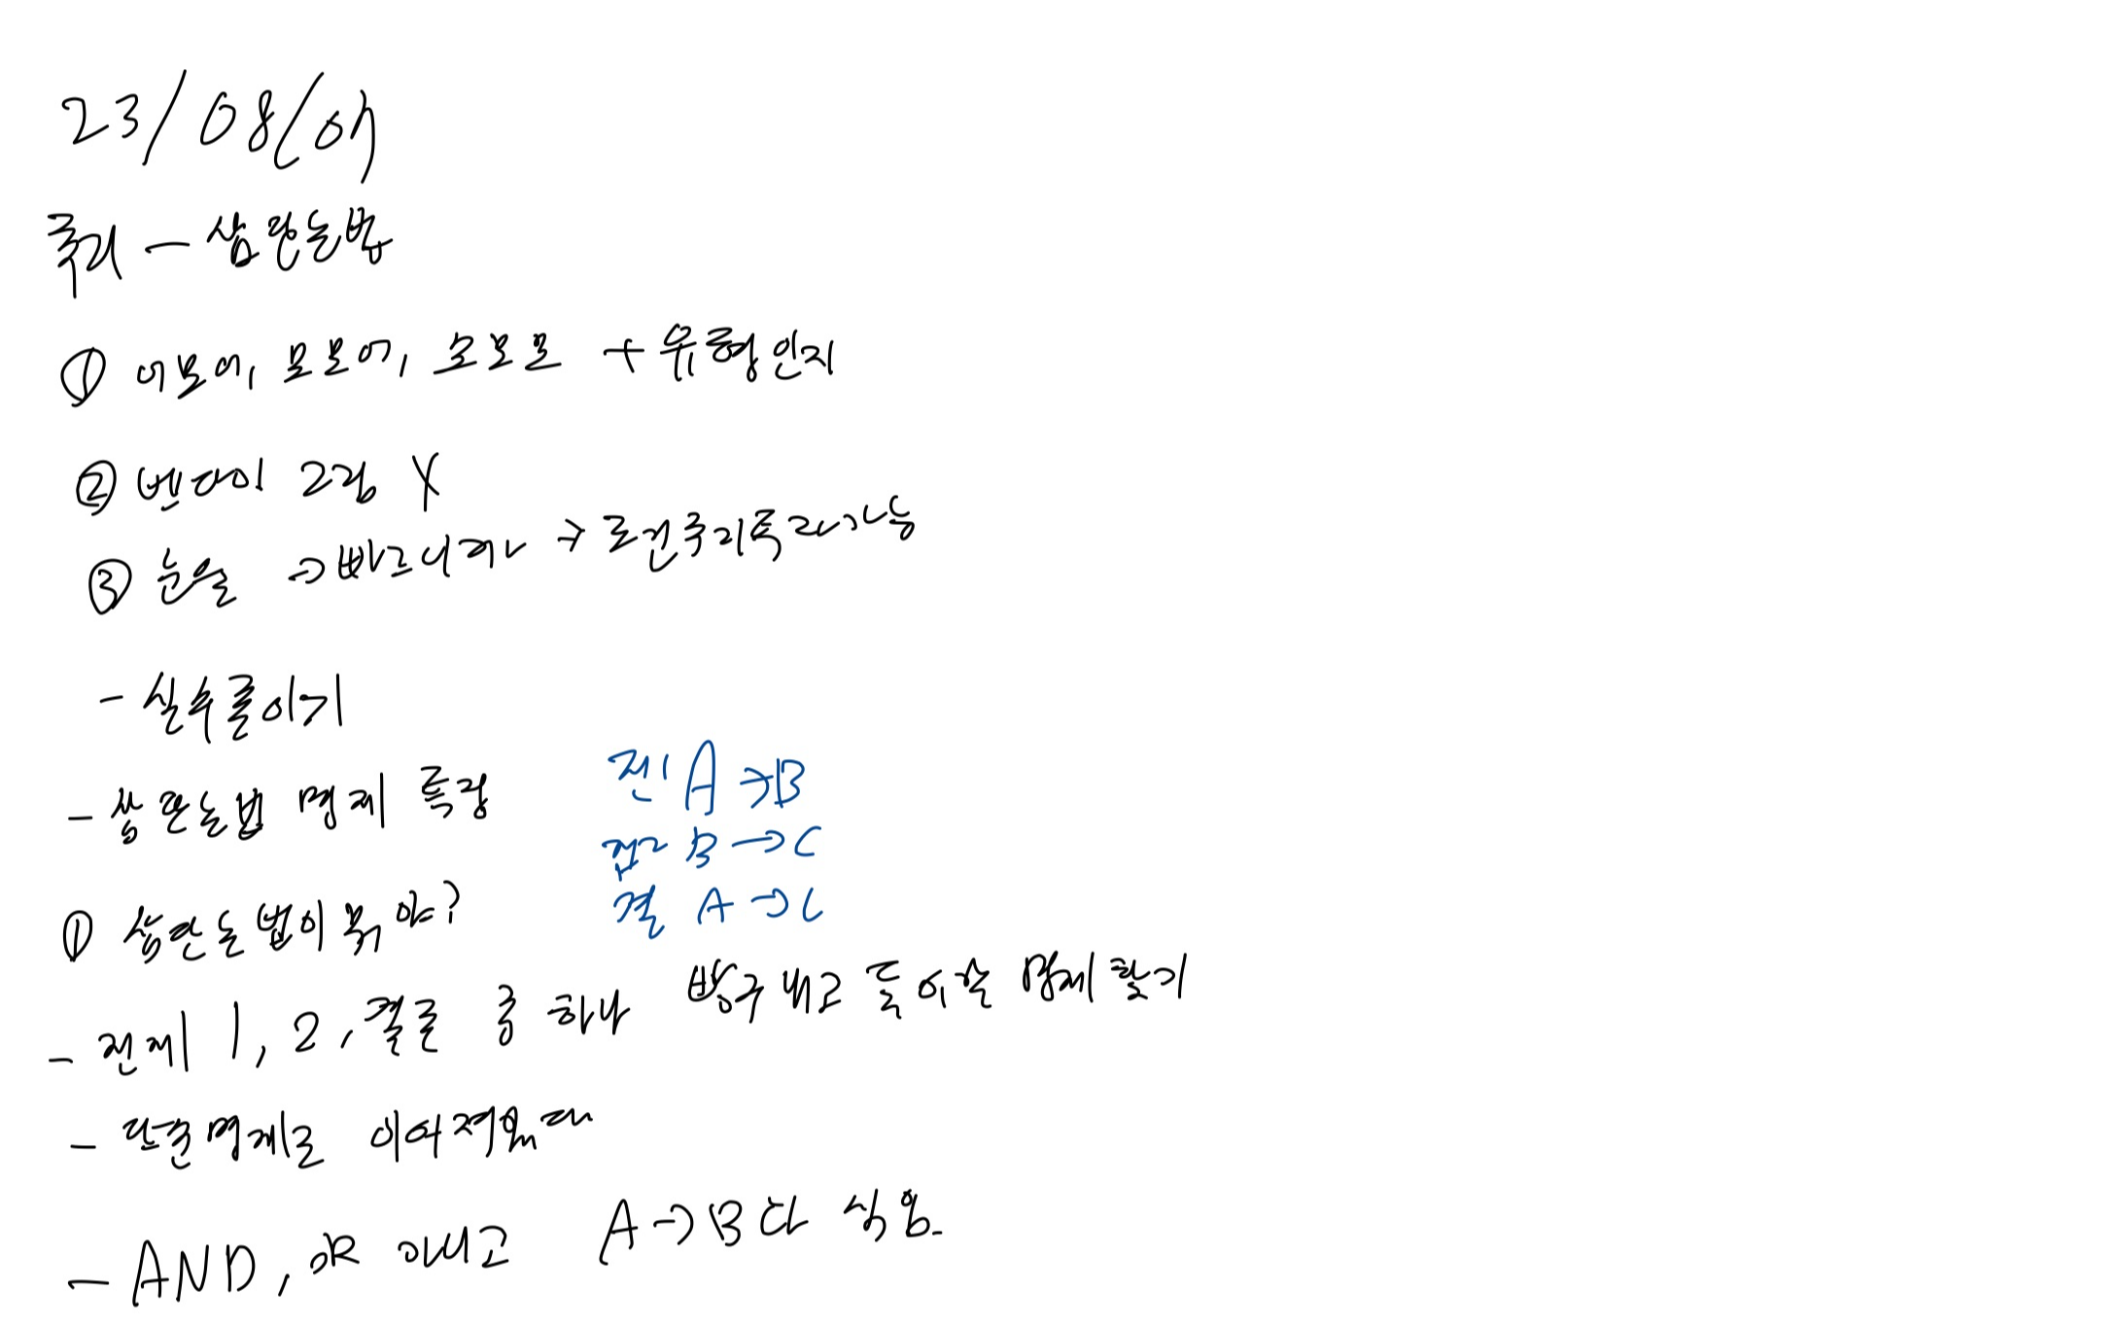 23/08/07
추리 - 삼단논법
① 어모어, 모모어, 모모모 + 유형인지
② 벤다이 그림 X
③ 눈을 → 빠르니까 → 조건추리 투자가능
- 실수줄이기
- 삼단논법 명제 특징
전1 A → B
전2 B → C
결 A → C
① 삼단논법이 뭐야?
- 전제 1, 2, 결론 중 하나 빵구내고 들어갈 명제 찾기
- 단순명제로 이어져있다
- AND, OR 아니고 A → B다 식임.